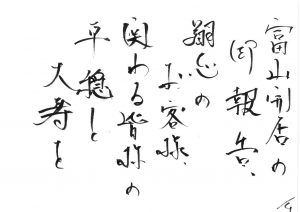 富山開店の
御報告、
翔心の
お客様、
関わる皆様の
平穏と
大寿を